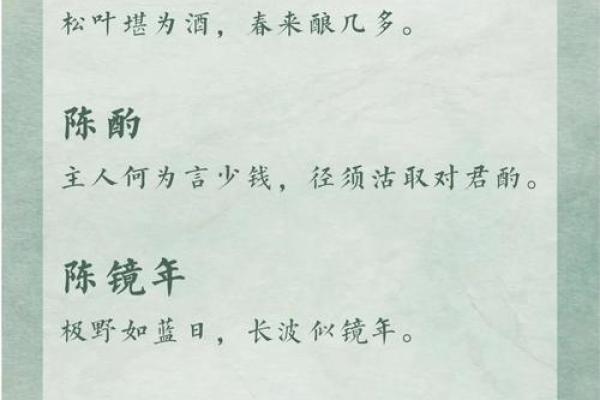 松叶堪为酒，春来酿几多。
陈酌
主人何为言少钱，径须沽取对君酌。
陈镜年
极野如蓝日，长波似镜年。